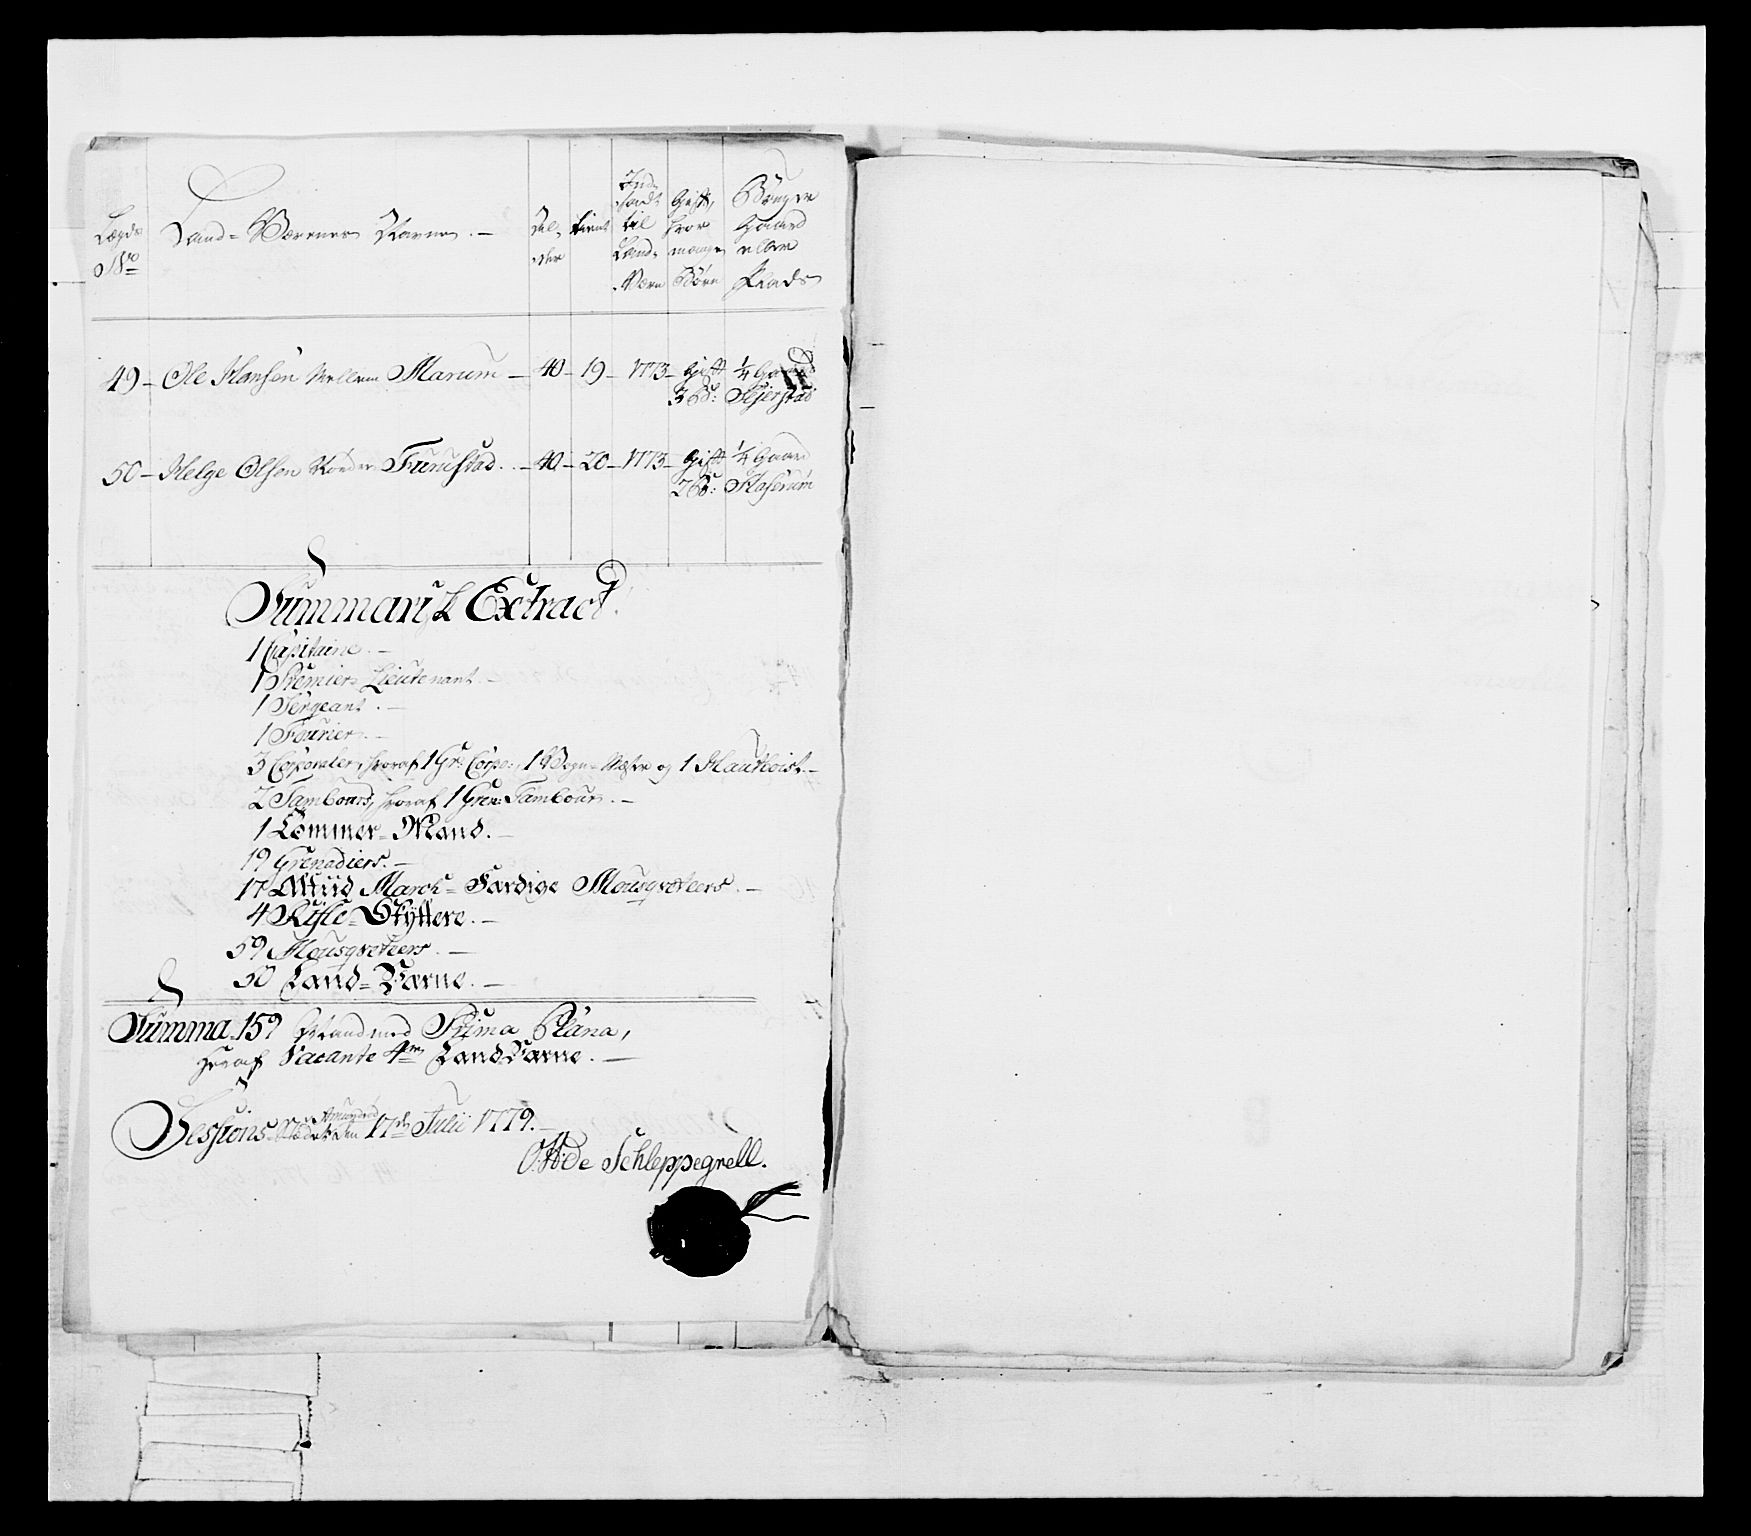 Lægds No
Land-Værnes Navne. –
Al-der
tient
Ind-sadt til Land-Værn
Gift, hvor mange Børn
Bönder Gaard eller Plads
49 – Ole Hansen Mellem Marum – 40 – 19 – 1773 – Gift ¼ Gaard
3 B: Sejerstad
50 – Helge Olsen Nordre Furustad. – 40 – 20 – 1773 – Gift ¼ Gaard
2 B: Haserum
Summarisk Extract.
1 Capitaine. –
1 Premier Lieutenant. –
1 Sergeant. –
1 Fourier. –
3 Corporaler, hvoraf 1 Gr: Corpo:, 1 Vogn-Mester og 1 Hautboist. –
2 Tambours, hvoraf 1 Gren: Tambour. –
1 Tømmer-Mand. –
19 Grenadiers. –
17 Marsch-Færdige Mousqveteers. –
4 Rifle-Skyttere. –
59 Mousqveteers. –
50 Land-Værne. –
Summa 159 Mand med Prima Plana,
hvoraf Vacante 4re LandVærne. –
Sessions-Stædet Amundrød den 17de Julii 1779. –
O: H: de Schleppegrell.